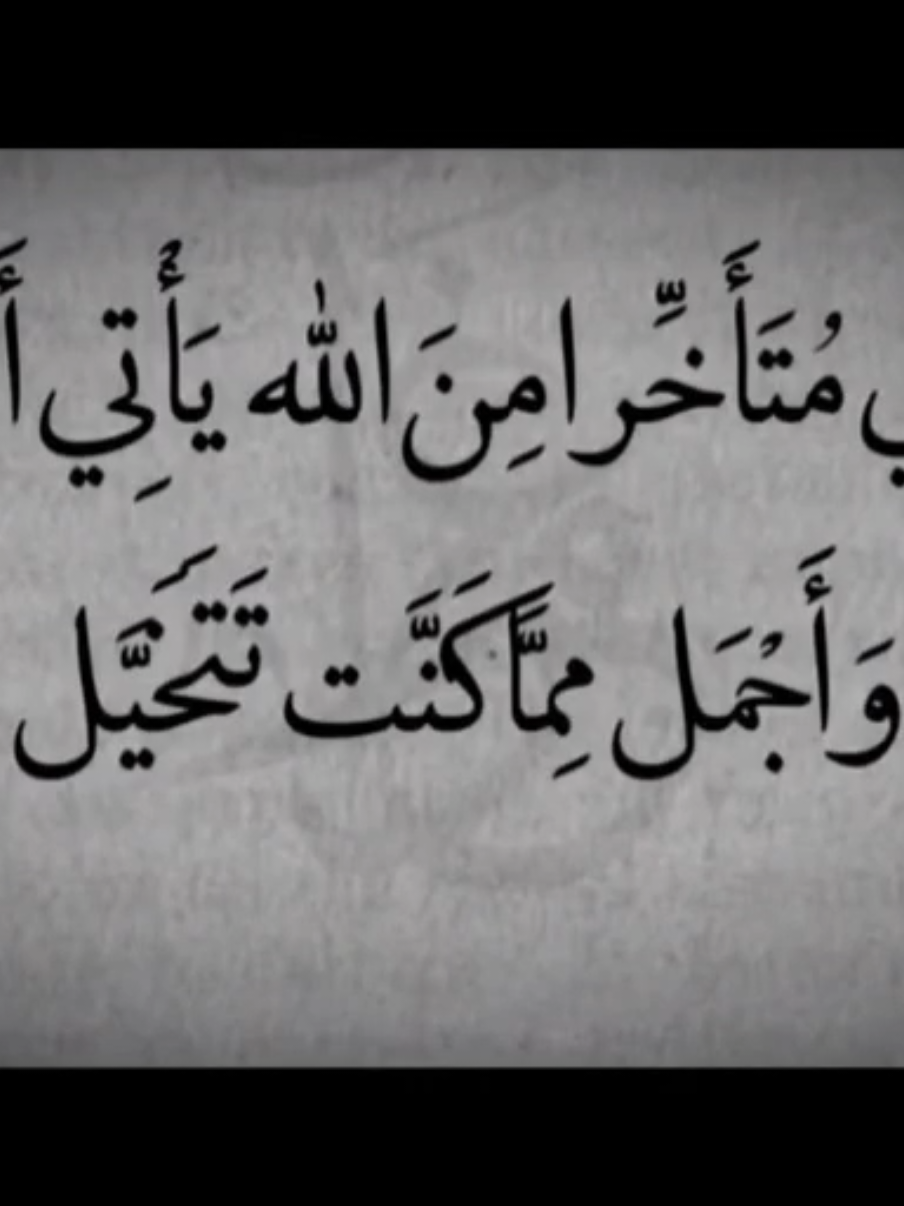 مُتَأَخِّرا مِنَ اللّٰه يَأْتِي
وَأَجْمَل مِمَّا كَنَّت تَتَخَيَّل